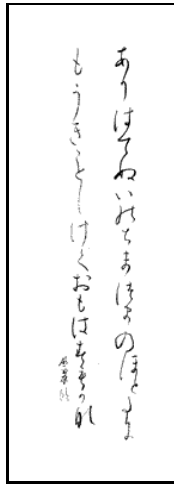 ありはてぬいのちまつまのほとたに
もうきことしけくおもはすもかな